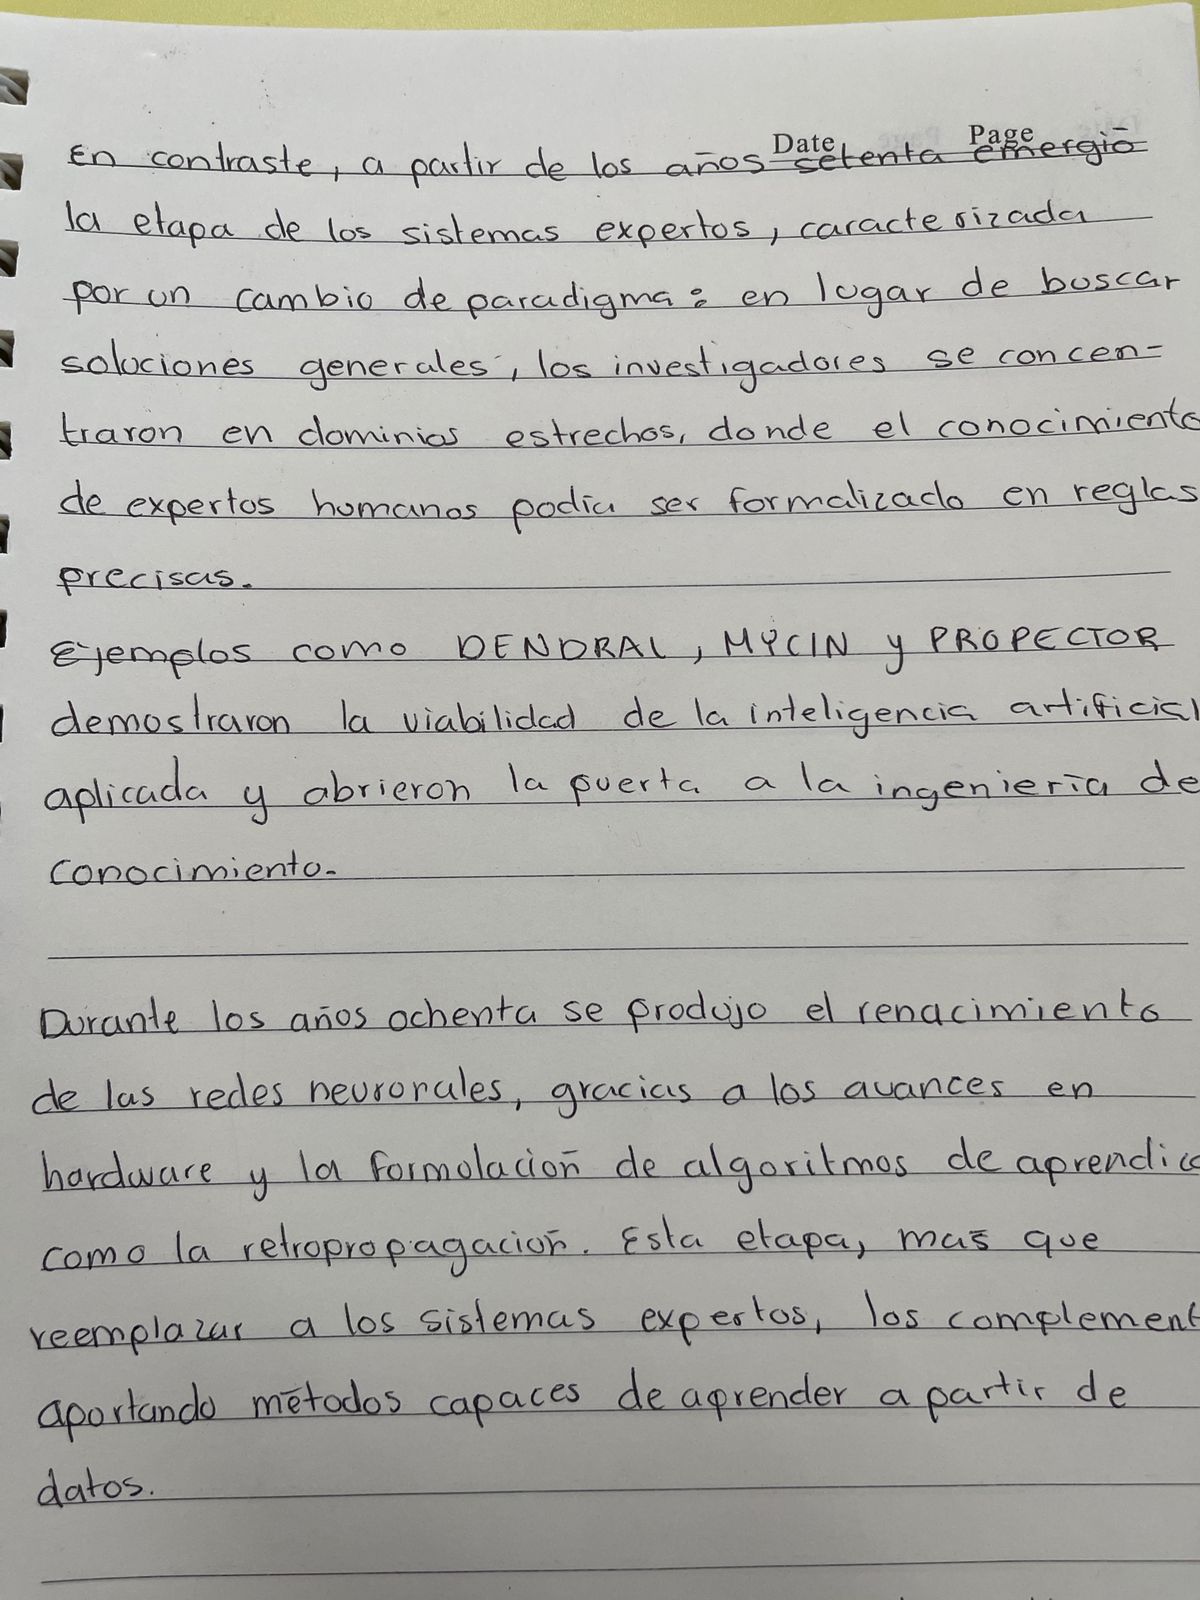 Date Page
En contraste, a partir de los años setenta emergió
la etapa de los sistemas expertos, caracterizada
por un cambio de paradigma: en lugar de buscar
soluciones generales, los investigadores se concen-
traron en dominios estrechos, donde el conocimiento
de expertos humanos podía ser formalizado en reglas
precisas.
Ejemplos como DENDRAL, MYCIN y PROPECTOR
demostraron la viabilidad de la inteligencia artificial
aplicada y abrieron la puerta a la ingeniería de
conocimiento.
Durante los años ochenta se produjo el renacimiento
de las redes neuronales, gracias a los avances en
hardware y la formulación de algoritmos de
como la retropropagación. Esta etapa, más que
reemplazar a los sistemas expertos, los
aportando métodos capaces de aprender a partir de
datos.